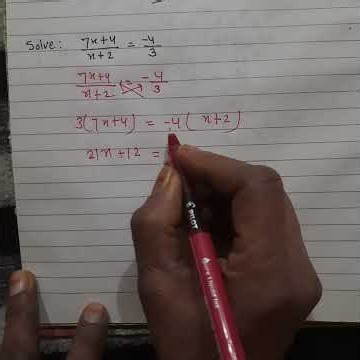 Solve: (7x+4)/(x+2) = -4/3
(7x+4)/(x+2) = -4/3
3(7x+4) = -4(x+2)
21x+12 =